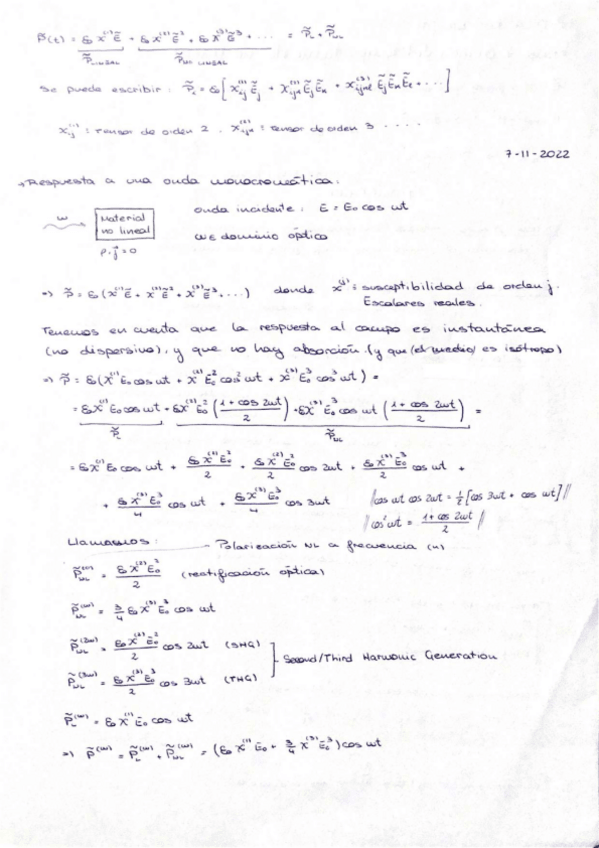 P̃(t) = ε₀ χ⁽¹⁾ Ẽ + ε₀ χ⁽²⁾ Ẽ² + ε₀ χ⁽³⁾ Ẽ³ + ... = P̃_L + P̃_NL
P̃ LINEAL P̃ NO LINEAL
Se puede escribir: P̃ᵢ = ε₀ [ χᵢⱼ⁽¹⁾ Ẽⱼ + χᵢⱼₖ⁽²⁾ Ẽⱼ Ẽₖ + χᵢⱼₖₗ⁽³⁾ Ẽⱼ Ẽₖ Ẽₗ + ... ]
χᵢⱼ⁽¹⁾: Tensor de orden 2, χᵢⱼₖ⁽²⁾: Tensor de orden 3 ....
7-11-2022
→ Respuesta a una onda monocromática:
ω Material no lineal onda incidente: E = E₀ cos ωt
ρ, j⃗ = 0 ω ∈ dominio óptico
=> P̃ = ε₀ (χ⁽¹⁾ Ẽ + χ⁽²⁾ Ẽ² + χ⁽³⁾ Ẽ³ + ...) donde χ⁽ʲ⁾: susceptibilidad de orden j.
Escalares reales.
Tenemos en cuenta que la respuesta al campo es instantánea
(no dispersivo), y que no hay absorción. (y que (el medio) es isótropo)
=> P̃ = ε₀ (χ⁽¹⁾ E₀ cos ωt + χ⁽²⁾ E₀² cos² ωt + χ⁽³⁾ E₀³ cos³ ωt) =
= ε₀ χ⁽¹⁾ E₀ cos ωt + ε₀ χ⁽²⁾ E₀² ((1 + cos 2ωt)/2) + ε₀ χ⁽³⁾ E₀³ cos ωt ((1 + cos 2ωt)/2) =
P̃_L P̃_NL
= ε₀ χ⁽¹⁾ E₀ cos ωt + ε₀ χ⁽²⁾ E₀²/2 + ε₀ χ⁽²⁾ E₀²/2 cos 2ωt + ε₀ χ⁽³⁾ E₀³/2 cos ωt +
+ ε₀ χ⁽³⁾ E₀³/4 cos ωt + ε₀ χ⁽³⁾ E₀³/4 cos 3ωt || cos ωt cos 2ωt = ½ [cos 3ωt + cos ωt] ||
|| cos² ωt = (1 + cos 2ωt)/2 ||
Llamamos: - Polarización NL a frecuencia (n)
P̃_NL⁽⁰⁾ = ε₀ χ⁽²⁾ E₀²/2 (rectificación óptica)
P̃_NL⁽ω⁾ = ¾ ε₀ χ⁽³⁾ E₀³ cos ωt
P̃_NL⁽²ω⁾ = ε₀ χ⁽²⁾ E₀²/2 cos 2ωt (SHG)
Second/Third Harmonic Generation
P̃_NL⁽³ω⁾ = ε₀ χ⁽³⁾ E₀³/2 cos 3ωt (THG)
P̃_L⁽ω⁾ = ε₀ χ⁽¹⁾ E₀ cos ωt
=> P̃⁽ω⁾ = P̃_L⁽ω⁾ + P̃_NL⁽ω⁾ = (ε₀ χ⁽¹⁾ E₀ + ¾ χ⁽³⁾ E₀³) cos ωt